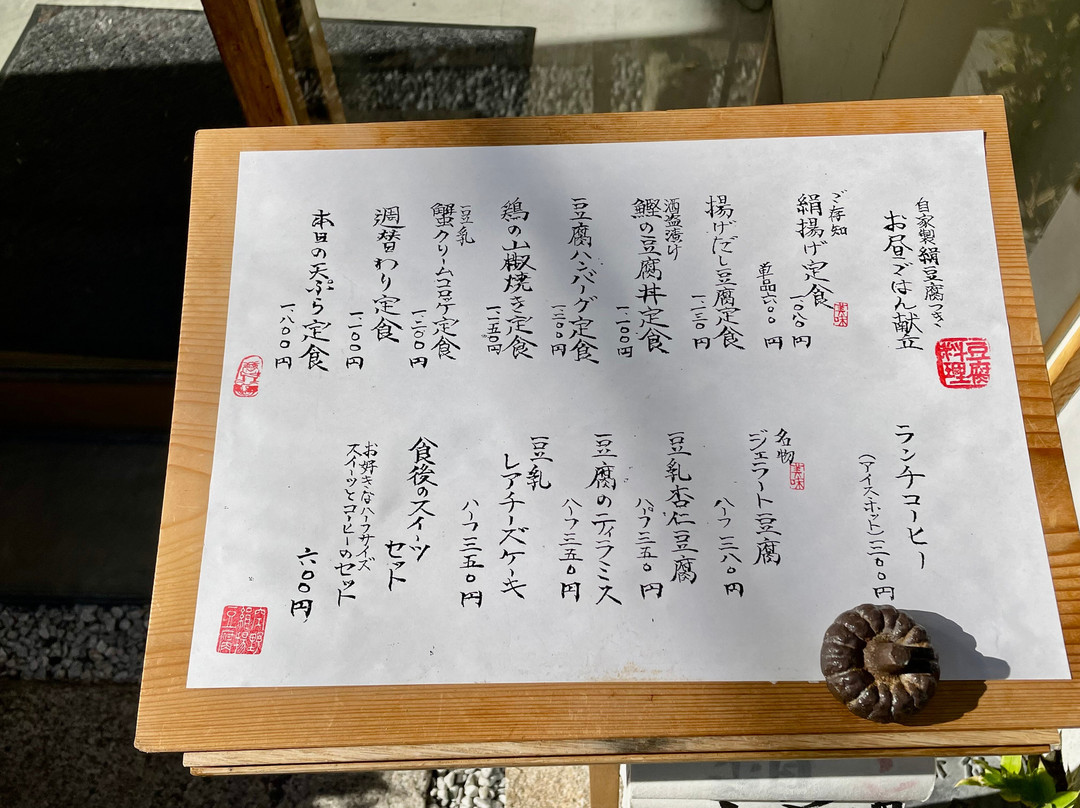 自家製絹豆腐つき
お昼ごはん献立
豆腐料理
ご存知
絹揚げ定食
一〇八〇円
単品六〇〇円
揚げだし豆腐定食
一一三〇円
酒盗漬け
鰹の豆腐丼定食
一一〇〇円
豆腐ハンバーグ定食
一二〇〇円
鶏の山椒焼き定食
一二五〇円
豆乳
蟹クリームコロケ定食
一二〇〇円
週替わり定食
一一〇〇円
本日の天ぷら定食
一八〇〇円
ランチコーヒー
(アイスホット)三〇〇円
名物
ジェラート豆腐
ハーフ三八〇円
豆乳杏仁豆腐
ハーフ三五〇円
豆腐のティラミス
ハーフ三五〇円
豆乳
レアチーズケーキ
ハーフ三五〇円
食後のスイーツ
セット
お好きなハーフサイズ
スイーツとコーヒーのセット
六〇〇円
空野
絹揚
豆腐